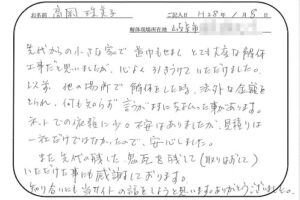 お名前 高岡 ご記入日 H28年1月8日
解体現場所在地
先代からの小さな家で 昔中もせまく とても大変な解体
工事だと思いましたが、心よく引きうけていただけました。
以前 他の場所で 解体をした時、法外な金額を
とられ、何も知らず 言うがままに支払った事があります。
ネットでの依頼に少々不安はありましたが、見積りは
一社だけではなかったので、安心しました。
また先代の残した鬼瓦を残して(取りはずして)
いただけた事にも感謝しております。
知り合いにも当サイトの話をしようと思います。ありがとうございました。